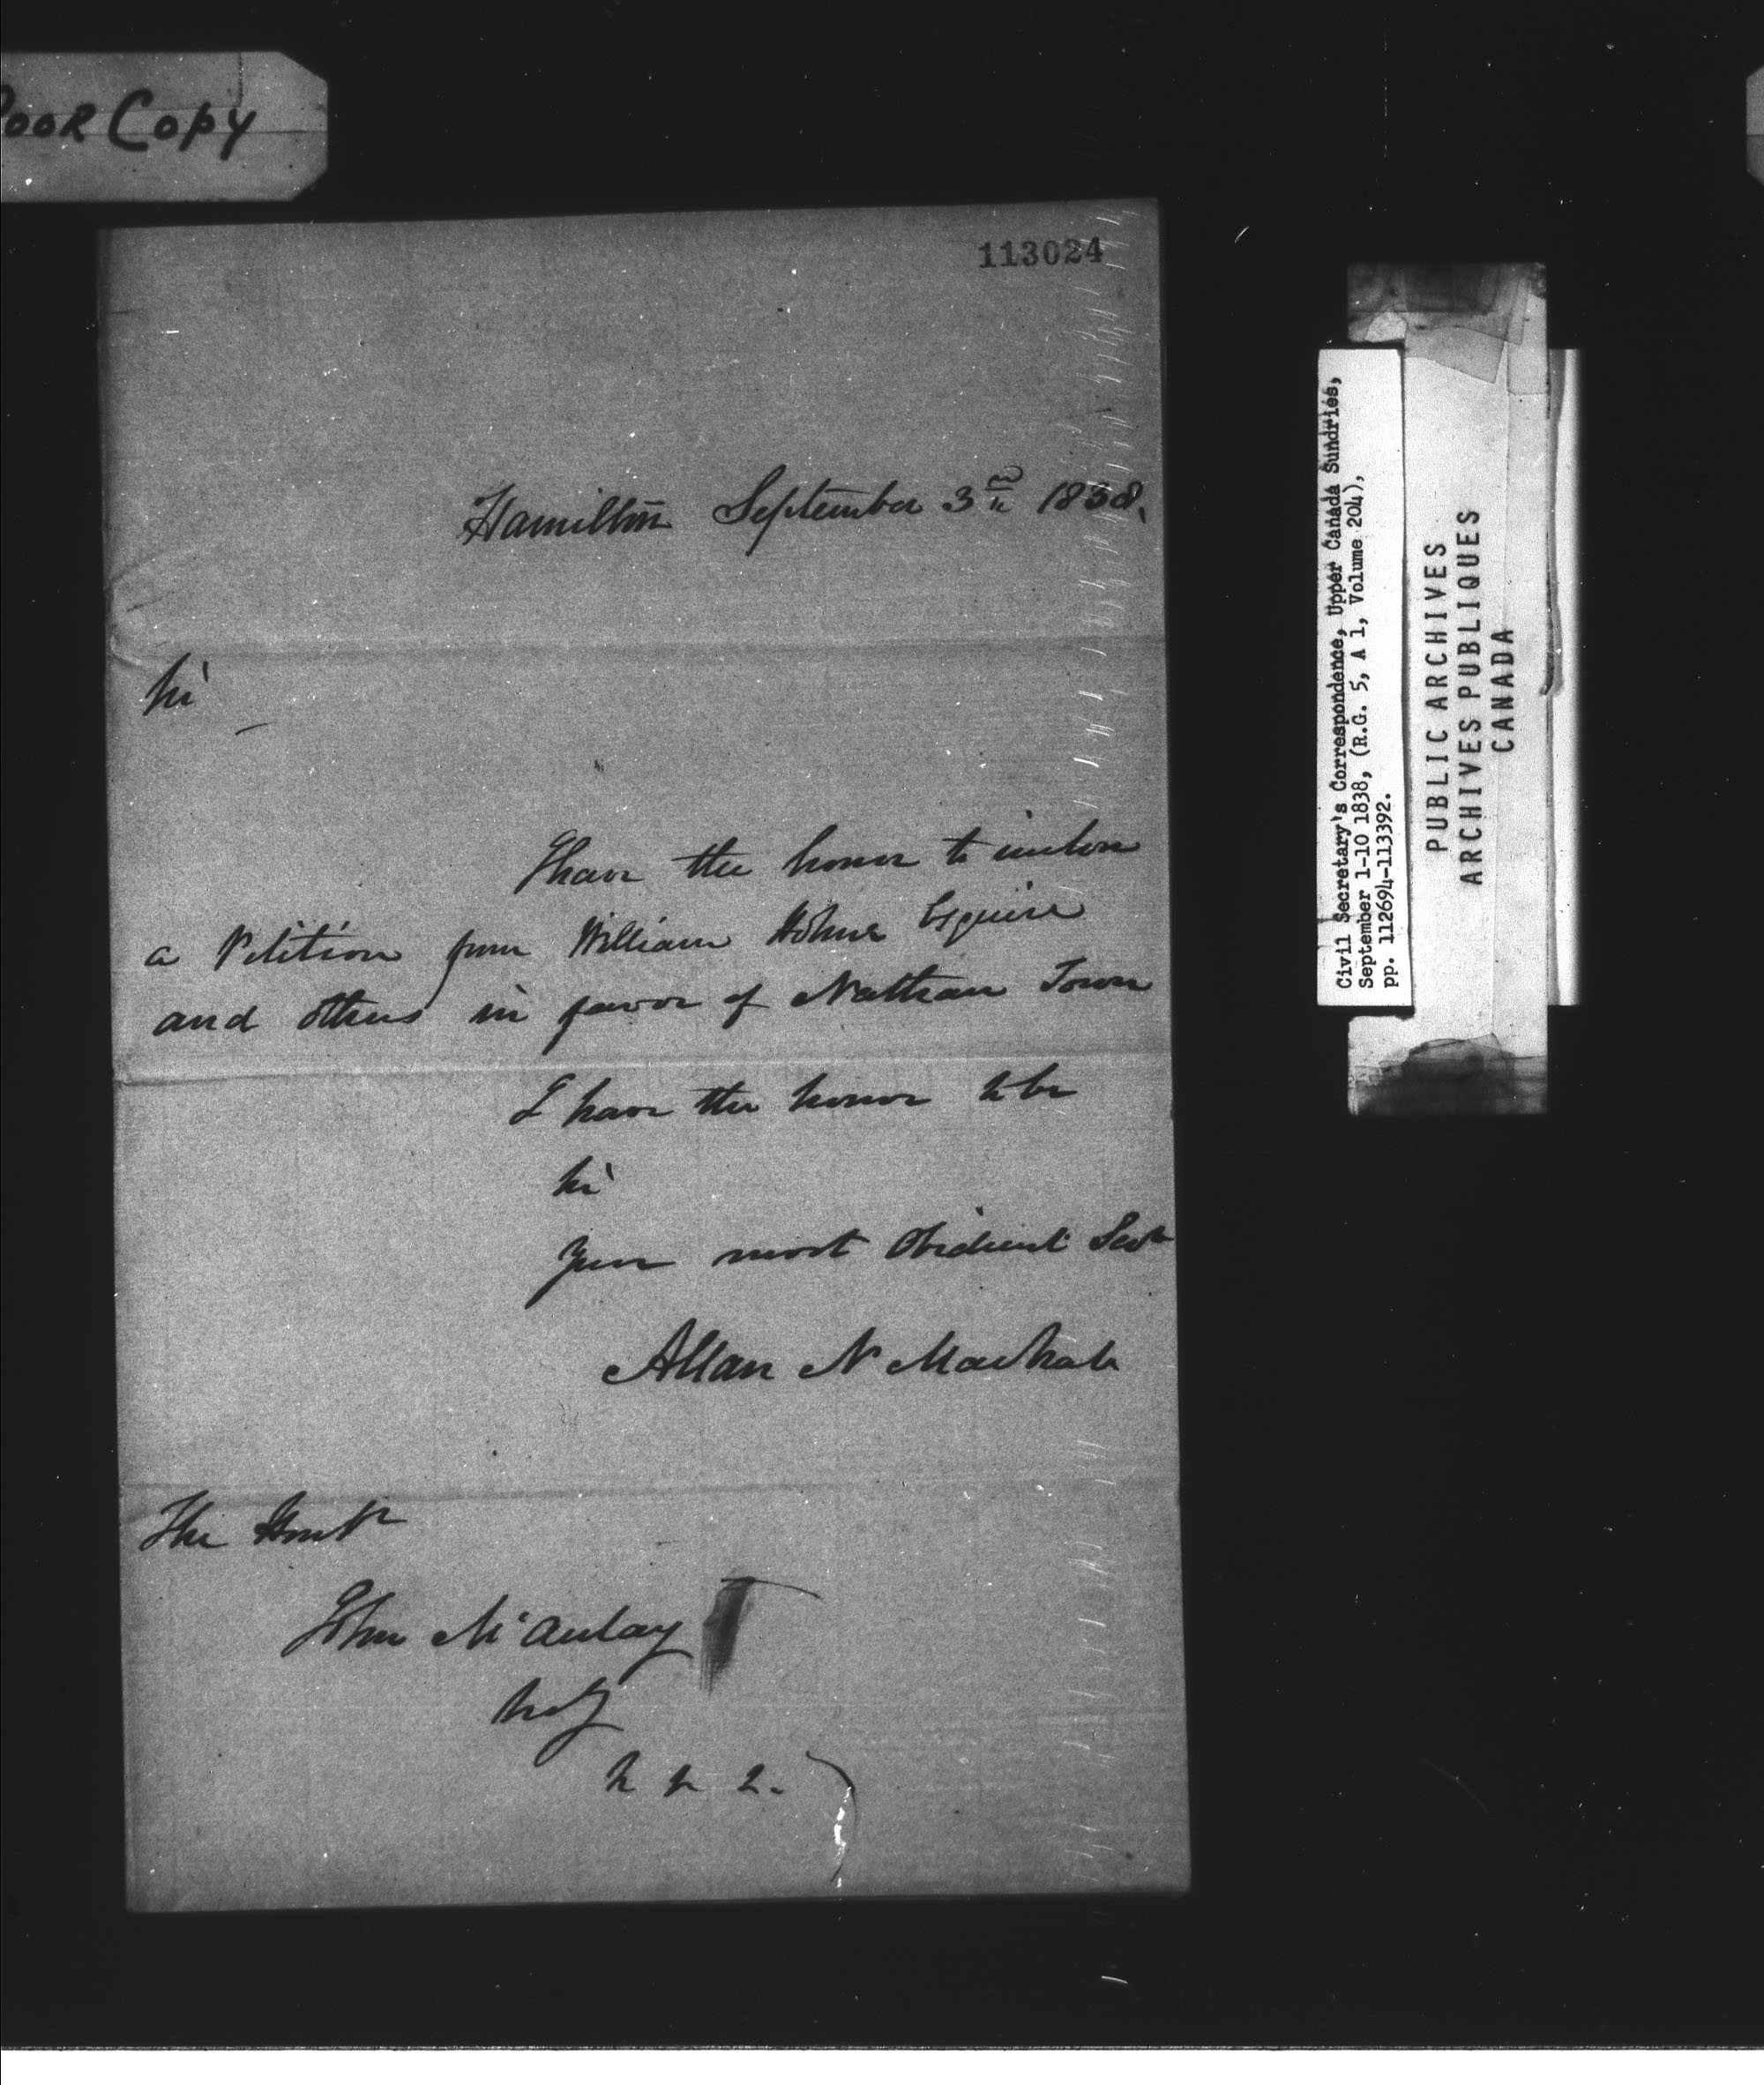 Poor Copy
113024
Hamilton September 3rd 1838.
Sir
I have the honor to enclose
a Petition from William Holme Esquire
and others in favor of Nathan Town
I have the honor to be
Sir
Your most Obedient Servt
Allan N MacNab
The Honble
John McAulay
&c &c &c.
Civil Secretary's Correspondence, Upper Canada Sundries,
September 1-10 1838, (R.G. 5, A 1, Volume 204),
pp. 112694-113392.
PUBLIC ARCHIVES
ARCHIVES PUBLIQUES
CANADA